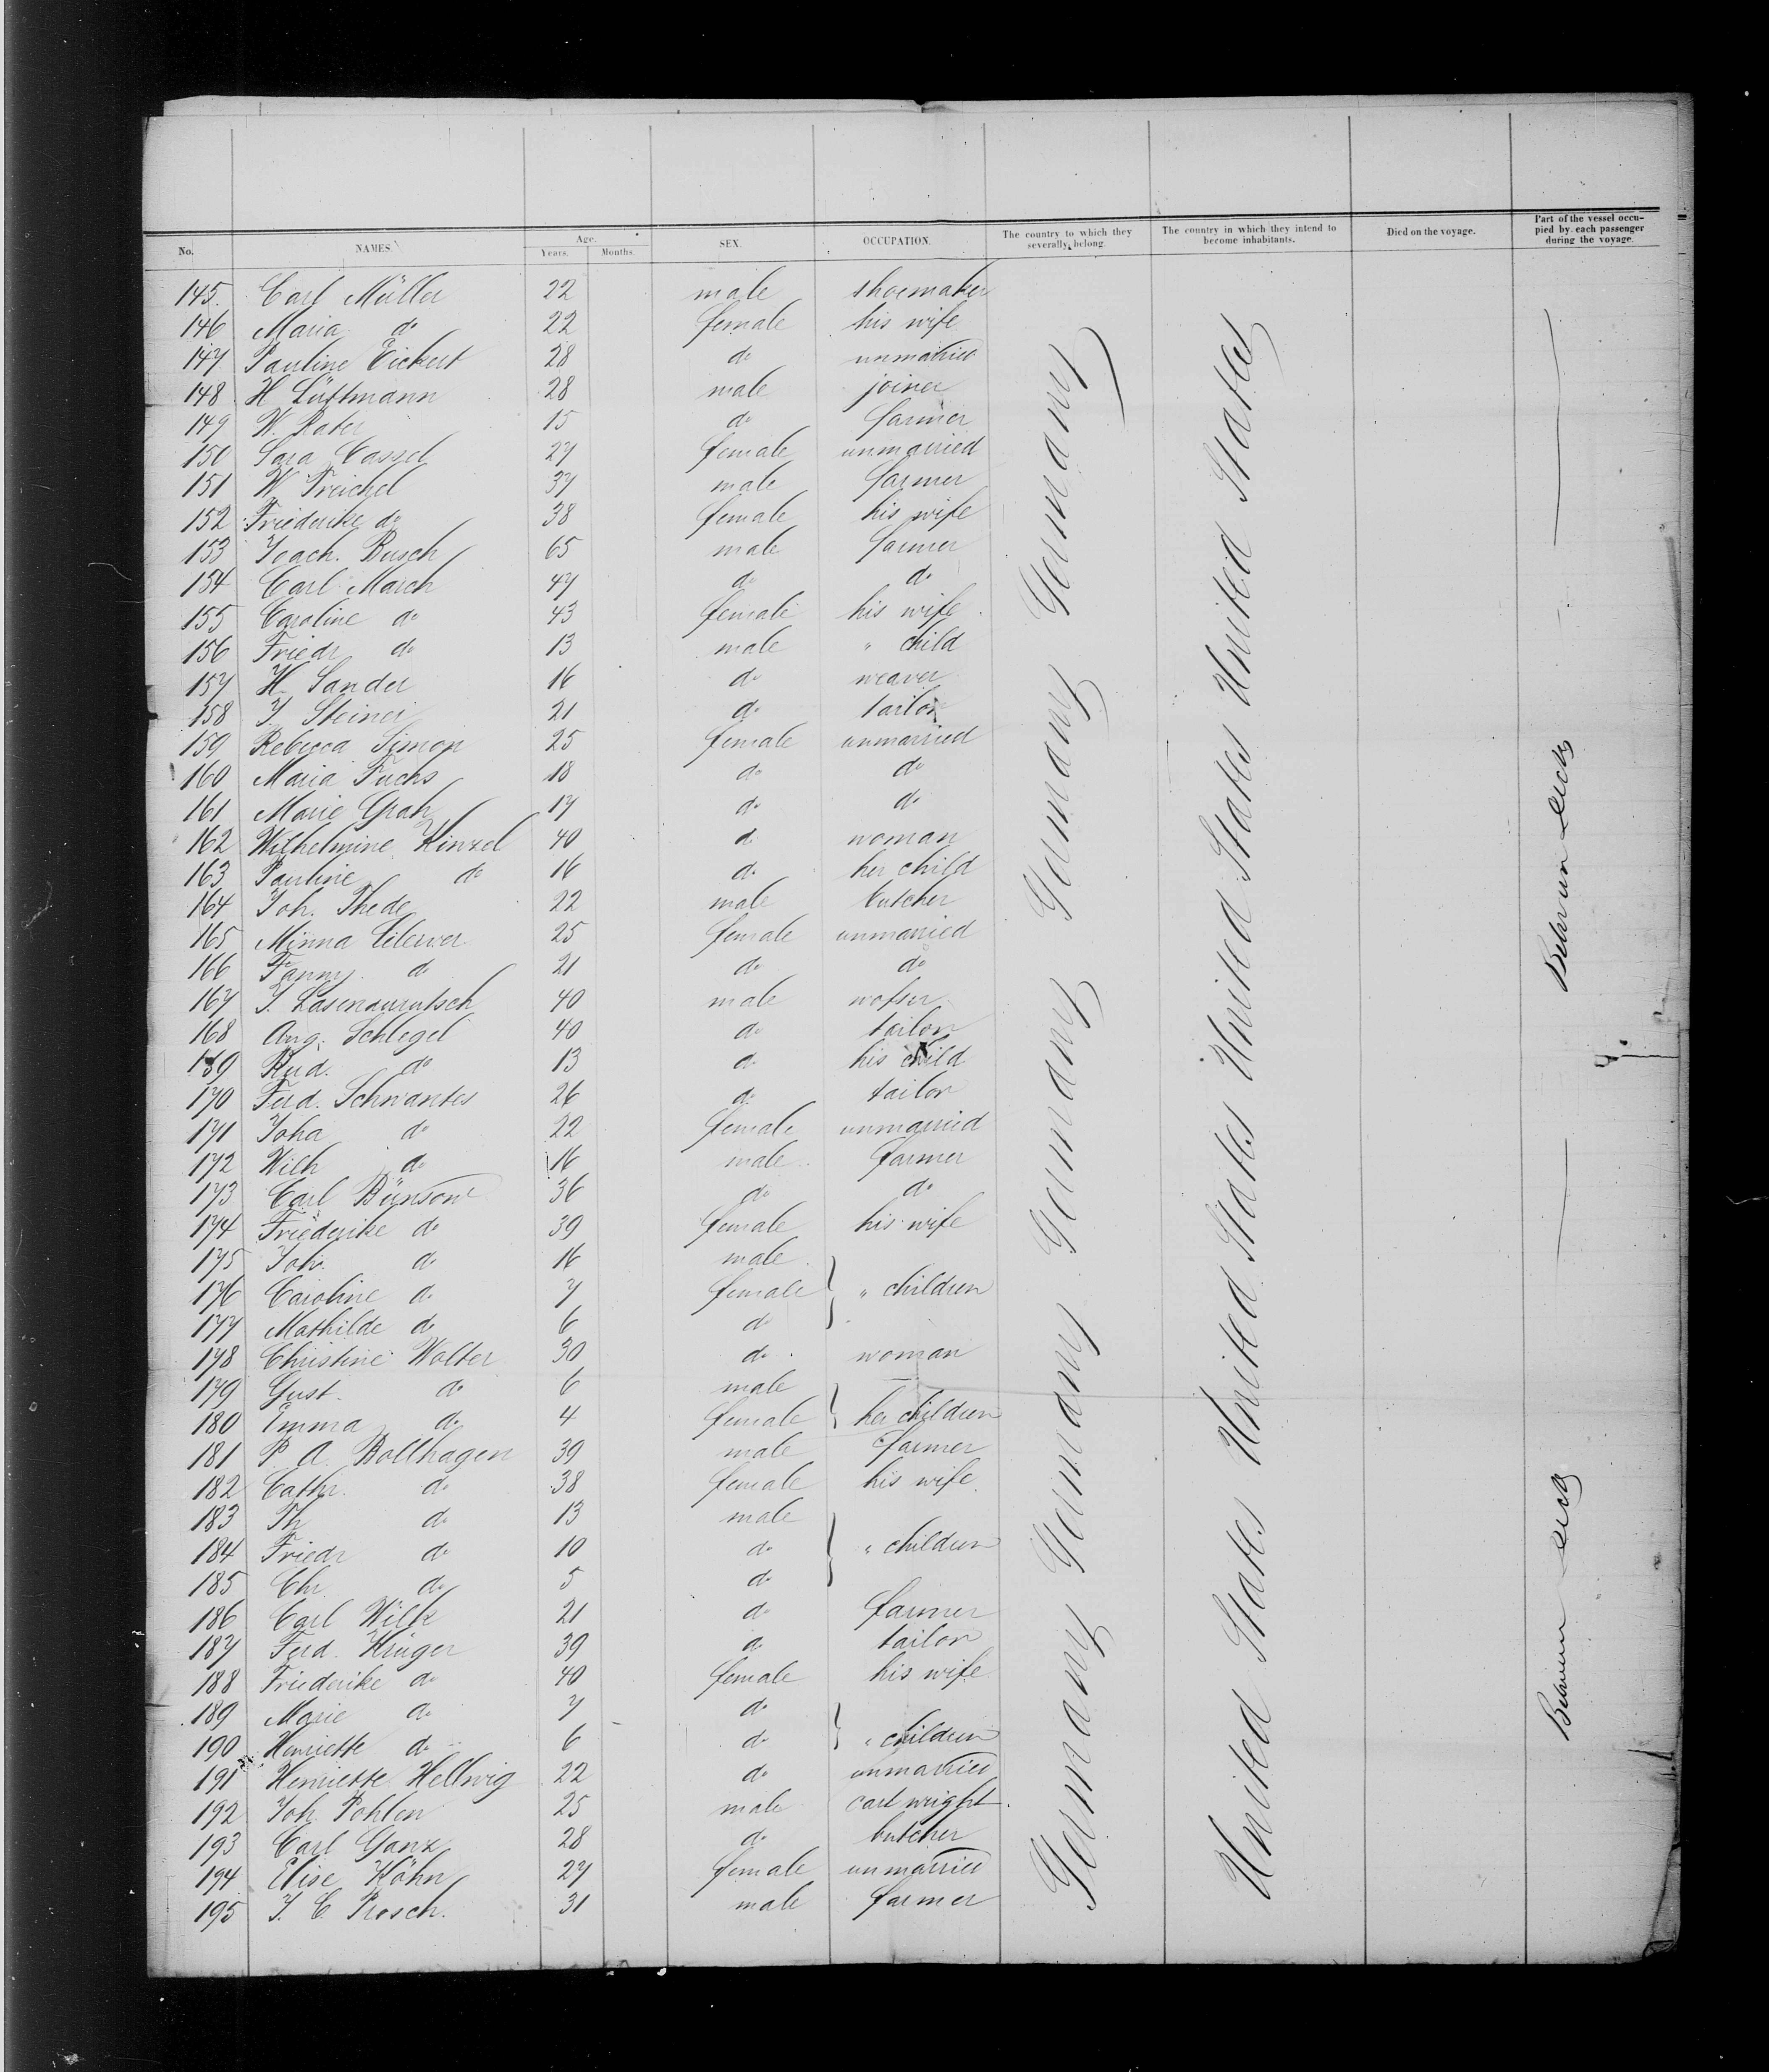 No. NAMES Age. Years. Months. SEX. OCCUPATION. The country to which they severally belong. The country in which they intend to become inhabitants. Died on the voyage. Part of the vessel occu- pied by each passenger during the voyage.
145. Carl Müller 22 male shoemaker
146 Maria do 22 female his wife
147 Pauline Eickert 28 do unmarried
148 H Lüttmann 28 male joiner
149 W. Rater 15 do farmer
150 Sara Cassel 27 female unmarried
151 W Treichel 37 male farmer
152 Friederike do 38 female his wife
153 Joach. Busch 65 male farmer
154 Carl March 47 do do
155 Caroline do 43 female his wife
156 Friedr do 13 male " child
157 H. Sander 16 do weaver
158 J. Steiner 21 do tailor
159 Rebecca Simon 25 female unmarried
160 Maria Fuchs 18 do do
161 Marie Grah 17 do do
162 Wilhelmine Kinzel 40 do woman
163 Pauline do 16 do her child
164 Joh. Thede 22 male butcher
165 Minna 25 female unmarried
166 Fanny do 21 do do
167 J. 40 male
168 Aug. Schlegel 40 do tailor
169 Rud. do 13 do his child
170 Ferd. Schwantes 26 do tailor
171 Joha do 22 female unmarried
172 Wilh do 16 male farmer
173 Carl Bünsow 36 do do
174 Friederike do 39 female his wife
175 Joh. do 16 male
176 Caroline do 7 female " children
177 Mathilde do 6 do
178 Christine Wolter 30 do woman
179 Gust. do 6 male
180 Emma do 4 female her children
181 P. A. Bollhagen 39 male farmer
182 Cathr. do 38 female his wife
183 Th do 13 male
184 Friedr do 10 do " children
185 Chr do 5 do
186 Carl Wilk 21 do farmer
187 Ferd. Krüger 39 do tailor
188 Friederike do 40 female his wife
189 Marie do 7 do
190 Henriette do 6 do " children
191 Henriette Hellwig 22 do unmarried
192 Joh. Pohlen 25 male cart wright.
193 Carl Ganz 28 do butcher
194 Elise Höhn 27 female unmarried
195 J. C. Prosch. 31 male farmer
Germany Germany Germany Germany Germany Germany
United States United States United States United States United States
Between decks
Between decks